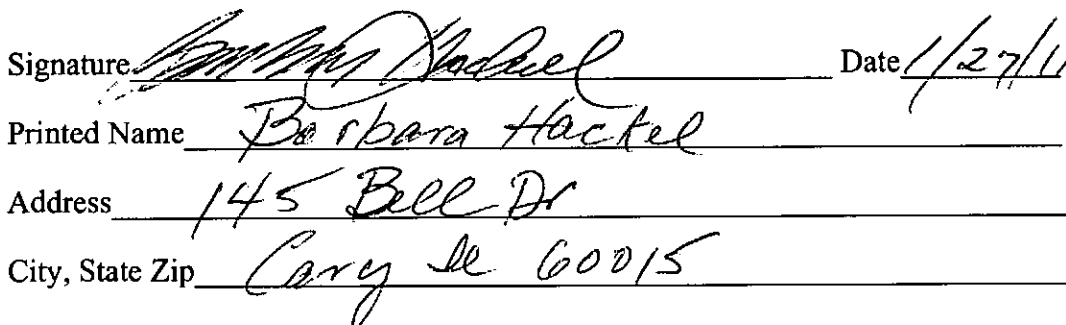 Signature Date 1/27/11
Printed Name Barbara Hackel
Address 145 Bell Dr
City, State Zip Cary Il 60015